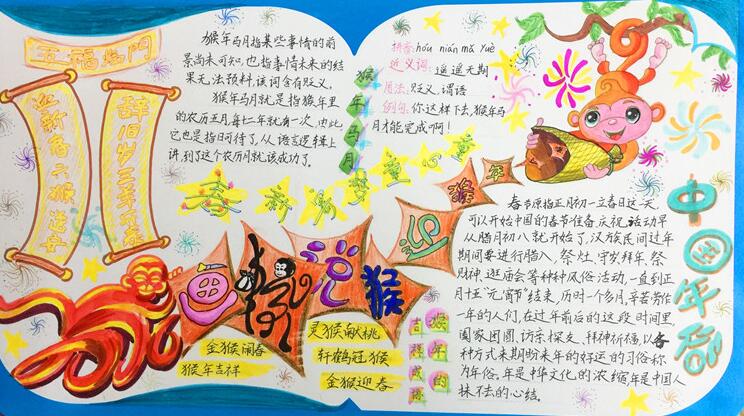 五福临门
迎新春六猴送安
辞旧岁三羊开泰
猴年马月指某些事情的前
景尚未可知,也指事情未来的结
果无法预料,该词含有贬义。
猴年马月就是指猴年里
的农历五月,每十二年就有一次,由此
它也是指日可待了,从语言逻辑上
讲,到了这个农历月就该成功了。
猴年马月
拼音:hóu nián mǎ yuè
近义词:遥遥无期
用法:贬义,谓语
例句:你这样下去,猴年马
月才能完成啊!
春
新
梦
童
心
童
迎
猴
年
画
猴
说
猴
金猴闹春
猴年吉祥
灵猴献桃
轩鹤冠猴
金猴迎春
猴年的
吉祥成语
中国年俗
春节原指正月初一立春日这一天,
可以开始中国的春节准备庆祝活动早
从腊月初八就开始了,汉族民间过年
期间要进行腊入,祭灶,守岁拜年,祭
财神,逛庙会等种种风俗活动,一直到正
月十五"元宵节"结束,历时一个多月,辛苦劳作
一年的人们,在过年前后的这段时间里,
阖家团圆、访亲探友、拜神祈福,以各
种方式来期盼来年的好运的习俗称
为年俗。年是中华文化的浓缩,年是中国人
抹不去的心结。